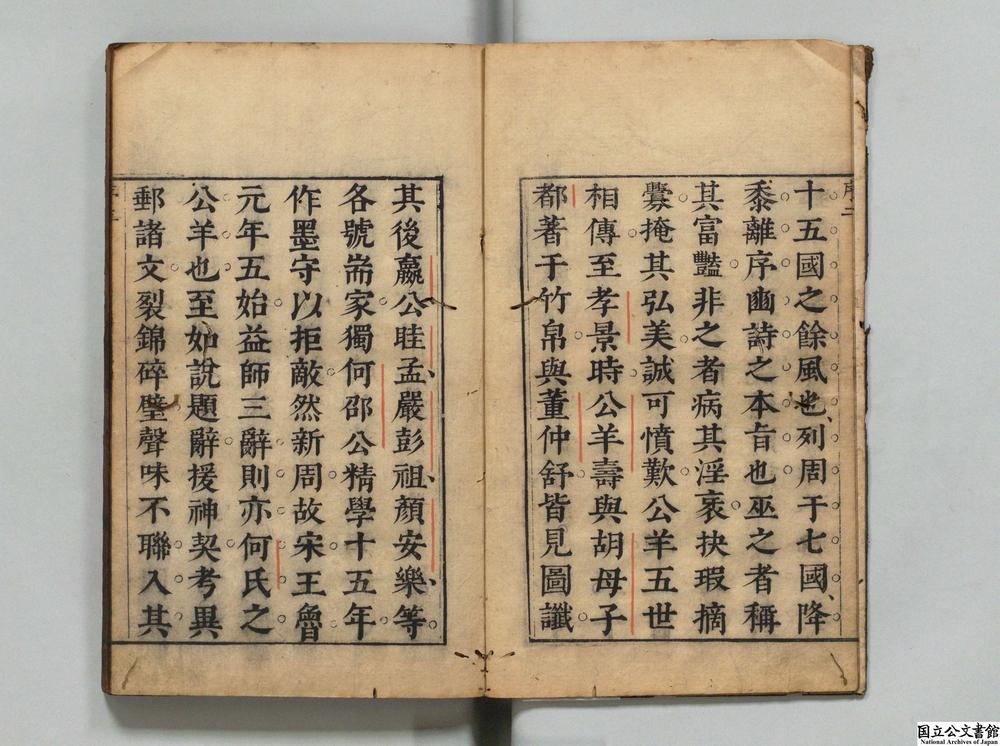 十五國之餘風也列周于七國降
黍離序豳詩之本旨也巫之者稱
其富豔非之者病其淫衺抉瑕摘
釁掩其弘美誠可憤歎公羊五世
相傳至孝景時公羊壽與胡母子
都著于竹帛與董仲舒皆見圖讖
其後嬴公眭孟嚴彭祖顏安樂等
各號耑家獨何邵公精學十五年
作墨守以拒敵然新周故宋王魯
元年五始益師三辭則亦何氏之
公羊也至如說題辭援神契考異
郵諸文裂錦碎璧聲味不聯入其
国立公文書館
National Archives of Japan